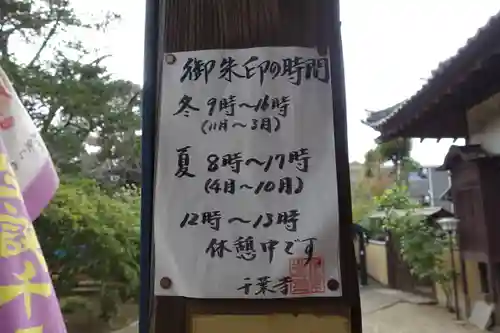 御朱印の時間
冬 9時～16時
(11月～3月)
夏 8時～17時
(4月～10月)
12時～13時
休憩中です
千葉寺